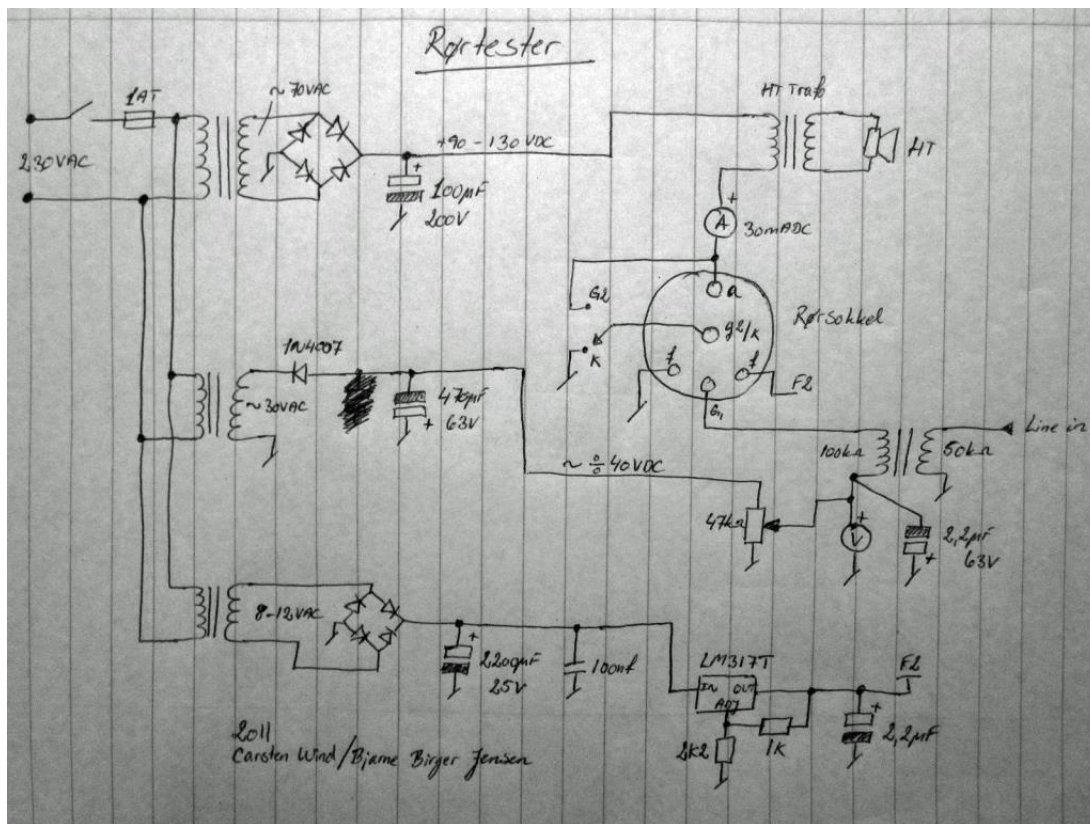 Rørtester
1AT
~70VAC
HT Trafo
230VAC
+90-130 VDC
HT
+
100µF
200V
+
A
30mADC
G2
a
Rørsokkel
g2/k
K
f
f
F2
G1
1N4007
~30VAC
470µF
+ 63V
~ ÷ 40VDC
100kΩ
50kΩ
Line in
47kΩ
+
V
2,2µF
+ 63V
8-12VAC
+
2200µF
25V
100nf
LM317T
IN OUT
ADJ
F2
2K2
1K
+
2,2µF
2011
Carsten Wind/Bjarne Birger Jensen